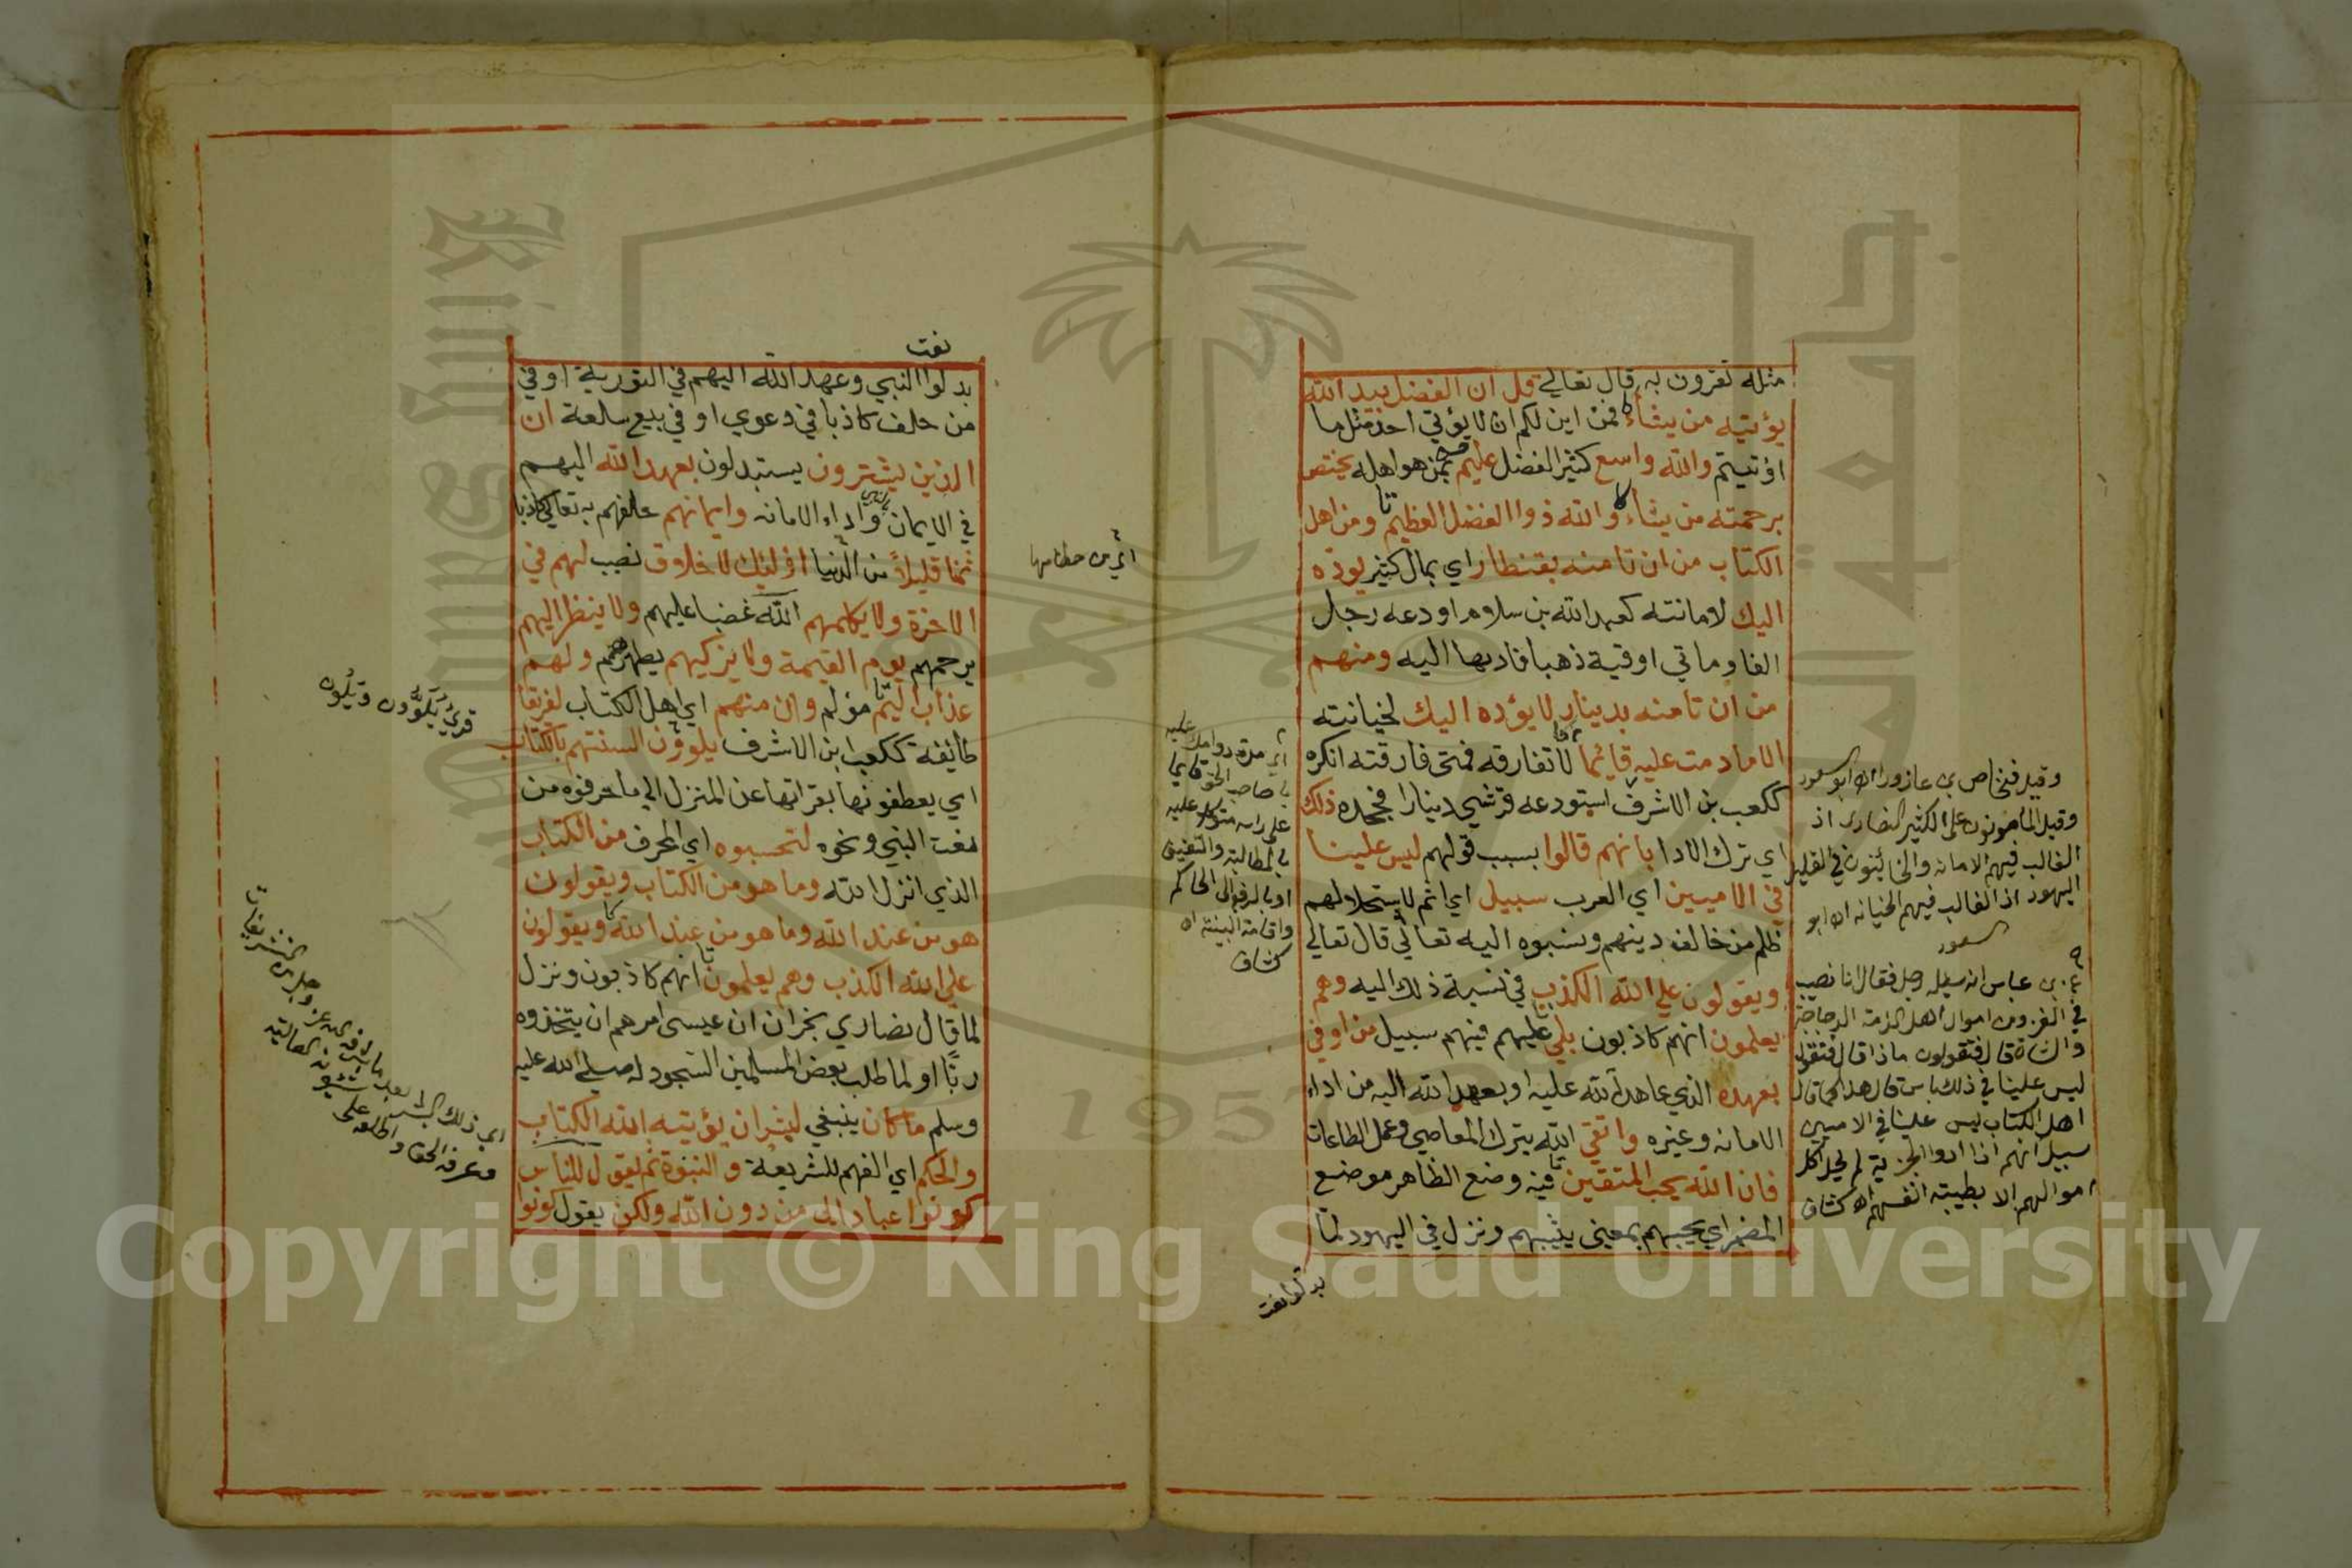 مثله تقرون به قال تعالي قل ان الفضل بيد الله
يؤتيه من يشاء فمن اين لكم ان لا يؤتي احد مثل ما
اوتيتم والله واسع كثير الفضل عليم بمن هو اهله يختص
برحمته من يشاء والله ذوا الفضل العظيم ومن اهل
الكتاب من ان تامنه بقنطار اي بمال كثير يوده
اليك لامانته كعبد الله بن سلام اودعه رجل
الفا وماتي اوقية ذهبا فاديها اليه ومنهم
من ان تامنه بدينار لا يؤده اليك لخيانته
الا ما دمت عليه قائما لا تفارقه فمتي فارقته انكره
ككعب بن الاشرف استودعه قرشي دينارا فجحده ذلك
اي ترك الادا بانهم قالوا بسبب قولهم ليس علينا
في الاميين اي العرب سبيل اي اثم لاستحلالهم
ظلم من خالف دينهم ونسبوه اليه تعالي قال تعالي
ويقولون علي الله الكذب في نسبة ذلك اليه وهم
يعلمون انهم كاذبون بلي عليهم فيهم سبيل من اوفي
بعهده الذي عاهد الله عليه او بعهد الله اليه من اداء
الامانه وغيره واتقي الله بترك المعاصي وعمل الطاعات
فان الله يحب المتقين فيه وضع الظاهر موضع
المضمر اي يحبهم بمعنى يثيبهم ونزل في اليهود لما
بدلوا نعت
وقيل فنحاص بن عازورا اه ابو السعود
وقيل المامونون على الكثير النصارى اذ
الغالب فيهم الامانه والخائنون في القليل
اليهود اذ الغالب فيهم الخيانه اه ابو
السعود
عن بن عباس انه سيله رجل فقال انا نصيب
في الغزو من اموال اهل الذمة الدجاجة
والشاة قال فتقولون ماذا قال فنقول
ليس علينا في ذلك باس قال هذا كما قال
اهل الكتاب ليس علينا في الاميين
سبيل انهم اذا ادوا الجزية لم يحل اكل
اموالهم الا بطيبة انفسهم اه كشاف
اي مدة دوامك عليه
يا صاحب الحق قايما
على راسه متوكلا عليه
بالمطالبة والتعنيف
او بالرفع الى الحاكم
واقامة البينة اه
كشاف
نعت
بدلوا النبي وعهد الله اليهم في التورية او في
من حلف كاذبا في دعوي او في بيع سلعة ان
الذين يشترون يستبدلون بعهد الله اليهم
في الايمان واداء الامانه وايمانهم حلفهم به تعالي كاذبا
ثمنا قليلا من الدنيا اوليك لا خلاق نصيب لهم في
الاخرة ولا يكلمهم الله غضبا عليهم ولا ينظر اليهم
يرحمهم يوم القيمة ولا يزكيهم يطهرهم ولهم
عذاب اليم مؤلم وان منهم اي اهل الكتاب لفريقا
طائفة ككعب ابن الاشرف يلوون السنتهم بالكتاب
اي يعطفونها بقراتها عن المنزل الي ما حرفوه من
نعت النبي ونحوه لتحسبوه اي المحرف من الكتاب
الذي انزل الله وما هو من الكتاب ويقولون
هو من عند الله وما هو من عند الله ويقولون
علي الله الكذب وهم يعلمون انهم كاذبون ونزل
لما قال نصاري نجران ان عيسى امرهم ان يتخذوه
ربا او لما طلب بعض المسلمين السجود له صلي الله عليه
وسلم ما كان ينبغي لبشر ان يؤتيه الله الكتاب
والحكم اي الفهم للشريعة والنبوة ثم يقول للناس
كونوا عبادا لي من دون الله ولكن يقول كونوا
قرئ يلوون
اي ذلك البشر بعد ما
وعرفه الحق واطلعه على
Copyright © King Saud University
1957